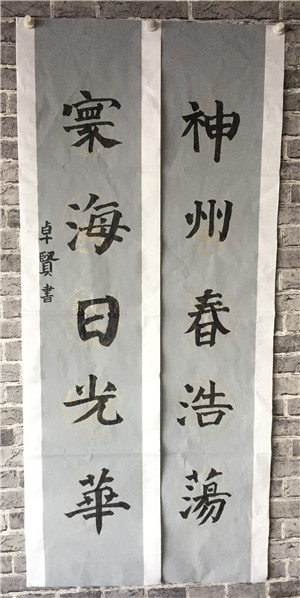 神州春浩蕩
寰海日光華
卓賢書